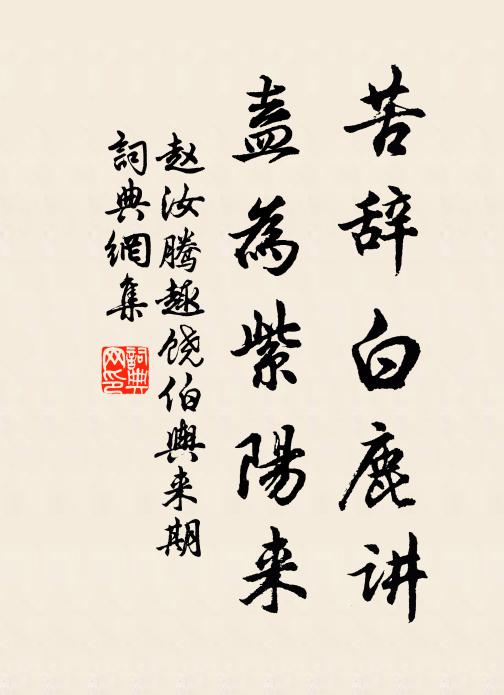 苦辞白鹿讲
盍为紫陽来
赵汝腾趣饶伯與来期
詞典網集
詞典网印